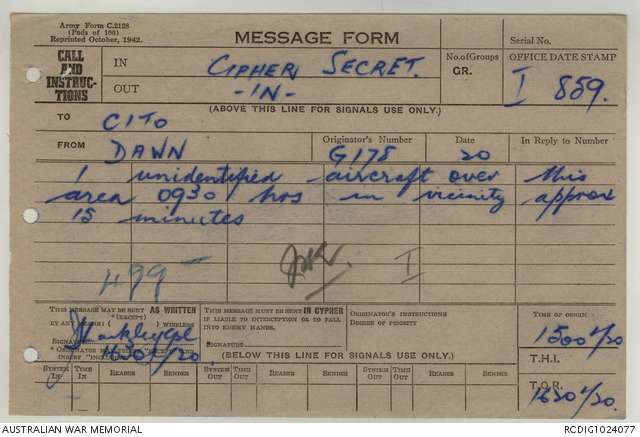 Army Form C.2128
(Pads of 100)
Reprinted October, 1942.
MESSAGE FORM
Serial No.
CALL AND INSTRUC-TIONS
IN
CIPHER SECRET.
No. of Groups
GR.
OFFICE DATE STAMP
OUT
-IN-
I 859.
(ABOVE THIS LINE FOR SIGNALS USE ONLY.)
TO
CITO
FROM
DAWN
Originator's Number
G178
Date
20
In Reply to Number
1 unidentified aircraft over this
area 0930 hrs in vicinity approx
15 minutes
499
I
THIS MESSAGE MAY BE SENT AS WRITTEN
BY ANY MEANS (EXCEPT) WIRELESS
SIGNATURE
THIS MESSAGE MUST BE SENT IN CYPHER
IF LIABLE TO INTERCEPTION OR TO FALL
INTO ENEMY HANDS.
SIGNATURE
ORIGINATOR'S INSTRUCTIONS
DEGREE OF PRIORITY
TIME OF ORIGIN
1500 L/20
(BELOW THIS LINE FOR SIGNALS USE ONLY.)
T.H.I.
SYSTEM IN
TIME IN
READER
SENDER
SYSTEM OUT
TIME OUT
READER
SENDER
SYSTEM OUT
TIME OUT
READER
SENDER
T.O.R.
1630 L/20.
AUSTRALIAN WAR MEMORIAL
RCDIG1024077